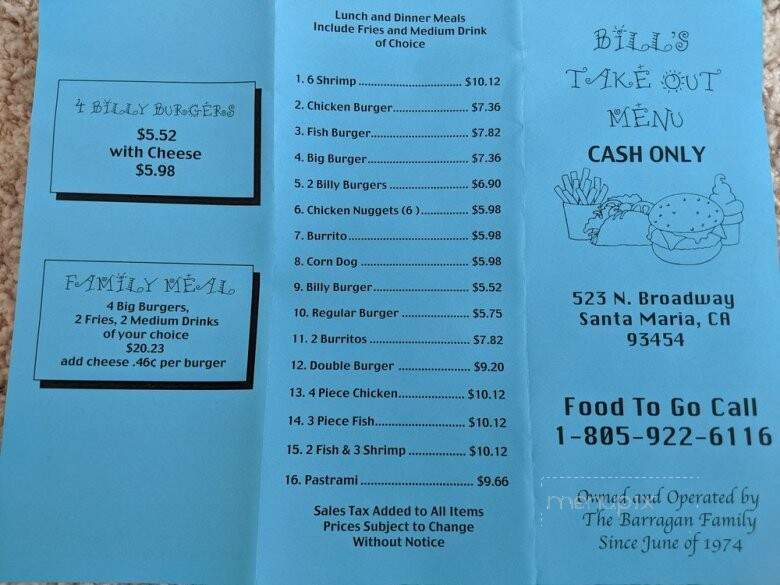 4 BILLY BURGERS
$5.52
with Cheese
$5.98
FAMILY MEAL
4 Big Burgers,
2 Fries, 2 Medium Drinks
of your choice
$20.23
add cheese .46¢ per burger
Lunch and Dinner Meals
Include Fries and Medium Drink
of Choice
1. 6 Shrimp .......................... $10.12
2. Chicken Burger................... $7.36
3. Fish Burger........................ $7.82
4. Big Burger......................... $7.36
5. 2 Billy Burgers ................... $6.90
6. Chicken Nuggets (6 )............ $5.98
7. Burrito............................. $5.98
8. Corn Dog .......................... $5.98
9. Billy Burger....................... $5.52
10. Regular Burger ................. $5.75
11. 2 Burritos ........................ $7.82
12. Double Burger .................. $9.20
13. 4 Piece Chicken................ $10.12
14. 3 Piece Fish..................... $10.12
15. 2 Fish & 3 Shrimp .............. $10.12
16. Pastrami ......................... $9.66
Sales Tax Added to All Items
Prices Subject to Change
Without Notice
BILL'S
TAKE OUT
MENU
CASH ONLY
523 N. Broadway
Santa Maria, CA
93454
Food To Go Call
1-805-922-6116
menupix
Owned and Operated by
The Barragan Family
Since June of 1974